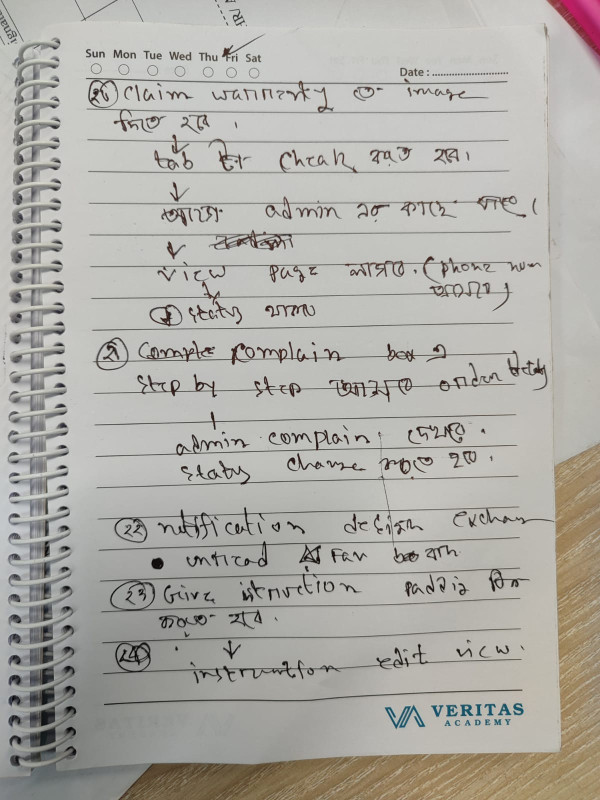 Sun Mon Tue Wed Thu Fri Sat
Date :
২০ claim warranty তে image
দিতে হবে।
tab টা cheak করতে হবে।
admin এর কাছে যাবে।
view page লাগবে. (phone num
আসবে)
status থাকবে
complain box এ
step by step আসবে order
admin complain দেখবে.
status change করতে হবে.
২২ notification design
• unread
২৩ Give istruction
করতে হবে.
২৪
instruction edit view.
VERITAS
ACADEMY